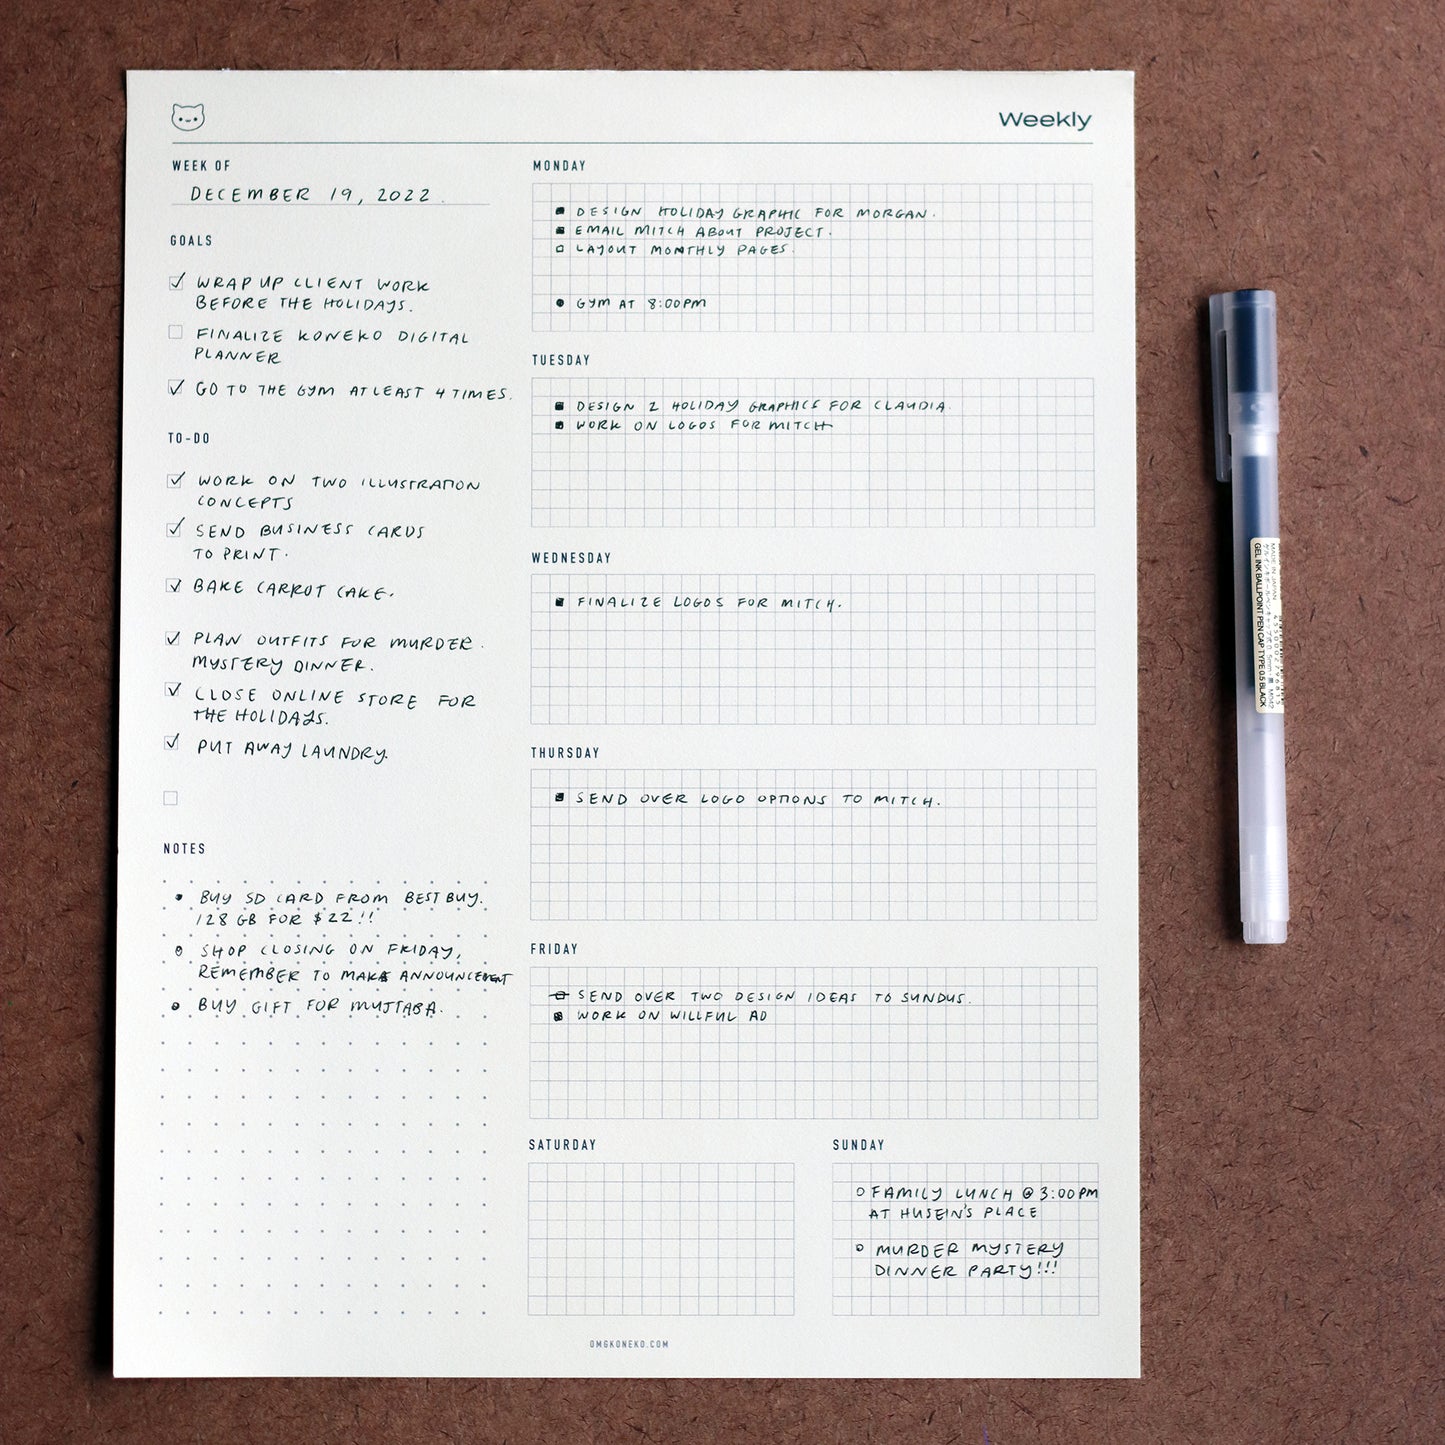 Weekly
WEEK OF
DECEMBER 19, 2022.
GOALS
WRAP UP CLIENT WORK
BEFORE THE HOLIDAYS.
FINALIZE KONEKO DIGITAL
PLANNER
GO TO THE GYM AT LEAST 4 TIMES.
TO-DO
WORK ON TWO ILLUSTRATION
CONCEPTS
SEND BUSINESS CARDS
TO PRINT.
BAKE CARROT CAKE.
PLAN OUTFITS FOR MURDER.
MYSTERY DINNER.
CLOSE ONLINE STORE FOR
THE HOLIDAYS.
PUT AWAY LAUNDRY.
NOTES
BUY SD CARD FROM BEST BUY.
128 GB FOR $22!!
SHOP CLOSING ON FRIDAY,
REMEMBER TO MAKE ANNOUNCEMENT
BUY GIFT FOR MUJTABA.
MONDAY
DESIGN HOLIDAY GRAPHIC FOR MORGAN.
EMAIL MITCH ABOUT PROJECT.
LAYOUT MONTHLY PAGES.
GYM AT 8:00PM
TUESDAY
DESIGN 2 HOLIDAY GRAPHICS FOR CLAUDIA.
WORK ON LOGOS FOR MITCH
WEDNESDAY
FINALIZE LOGOS FOR MITCH.
THURSDAY
SEND OVER LOGO OPTIONS TO MITCH.
FRIDAY
SEND OVER TWO DESIGN IDEAS TO SUNDUS.
WORK ON WILLFUL AD
SATURDAY
SUNDAY
FAMILY LUNCH @ 3:00PM
AT HUSEIN'S PLACE
MURDER MYSTERY
DINNER PARTY!!!
OMGKONEKO.COM
MADE IN JAPAN
GEL INK BALLPOINT PEN CAP TYPE 0.5 BLACK